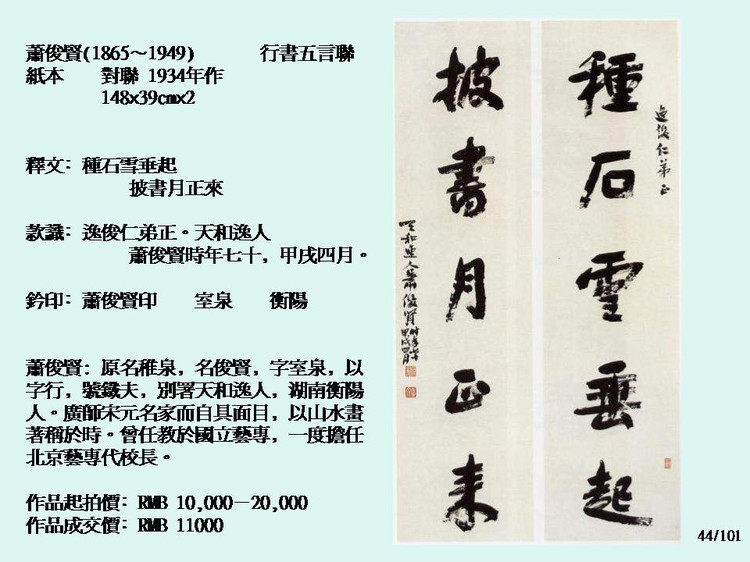 蕭俊賢(1865～1949) 行書五言聯
紙本 對聯 1934年作
148x39cmx2
釋文: 種石雪垂起
披書月正來
款識: 逸俊仁弟正。天和逸人
蕭俊賢時年七十, 甲戌四月。
鈐印: 蕭俊賢印 室泉 衡陽
蕭俊賢: 原名稚泉, 名俊賢, 字室泉, 以
字行, 號鐵夫, 別署天和逸人, 湖南衡陽
人。廣師宋元名家而自具面目, 以山水畫
著稱於時。曾任教於國立藝專, 一度擔任
北京藝專代校長。
作品起拍價: RMB 10,000－20,000
作品成交價: RMB 11000
逸俊仁弟正
種石雪垂起
披書月正来
天和逸人蕭俊賢時年七十甲戌四月
44/101